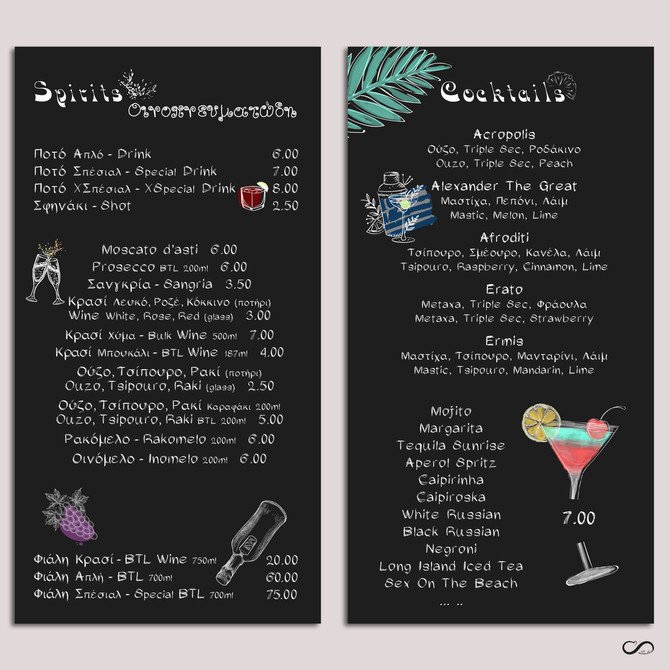 Spirits
Οινοπνευματώδη
Ποτό Απλό - Drink 6.00
Ποτό Σπέσιαλ - Special Drink 7.00
Ποτό ΧΣπέσιαλ - XSpecial Drink 8.00
Σφηνάκι - Shot 2.50
Moscato d'asti 6.00
Prosecco BTL 200ml 6.00
Σανγκρία - Sangria 3.50
Κρασί Λευκό, Ροζέ, Κόκκινο (ποτήρι)
Wine White, Rose, Red (glass) 3.00
Κρασί Χύμα - Bulk Wine 500ml 7.00
Κρασί Μπουκάλι - BTL Wine 187ml 4.00
Ούζο, Τσίπουρο, Ρακί (ποτήρι)
Ouzo, Tsipouro, Raki (glass) 2.50
Ούζο, Τσίπουρο, Ρακί Καραφάκι 200ml
Ouzo, Tsipouro, Raki BTL 200ml 5.00
Ρακόμελο - Rakomelo 200ml 6.00
Οινόμελο - Inomelo 200ml 6.00
Φιάλη Κρασί - BTL Wine 750ml 20.00
Φιάλη Απλή - BTL 700ml 60.00
Φιάλη Σπέσιαλ - Special BTL 700ml 75.00
Cocktails
Acropolis
Ούζο, Triple Sec, Ροδάκινο
Ouzo, Triple Sec, Peach
Alexander The Great
Μαστίχα, Πεπόνι, Λάιμ
Mastic, Melon, Lime
Afroditi
Τσίπουρο, Σμέουρο, Κανέλα, Λάιμ
Tsipouro, Raspberry, Cinnamon, Lime
Erato
Metaxa, Triple Sec, Φράουλα
Metaxa, Triple Sec, Strawberry
Ermis
Μαστίχα, Τσίπουρο, Μανταρίνι, Λάιμ
Mastic, Tsipouro, Mandarin, Lime
Mojito
Margarita
Tequila Sunrise
Aperol Spritz
Caipirinha
Caipiroska
White Russian
Black Russian
Negroni
Long Island Iced Tea
Sex On The Beach
... ..
7.00